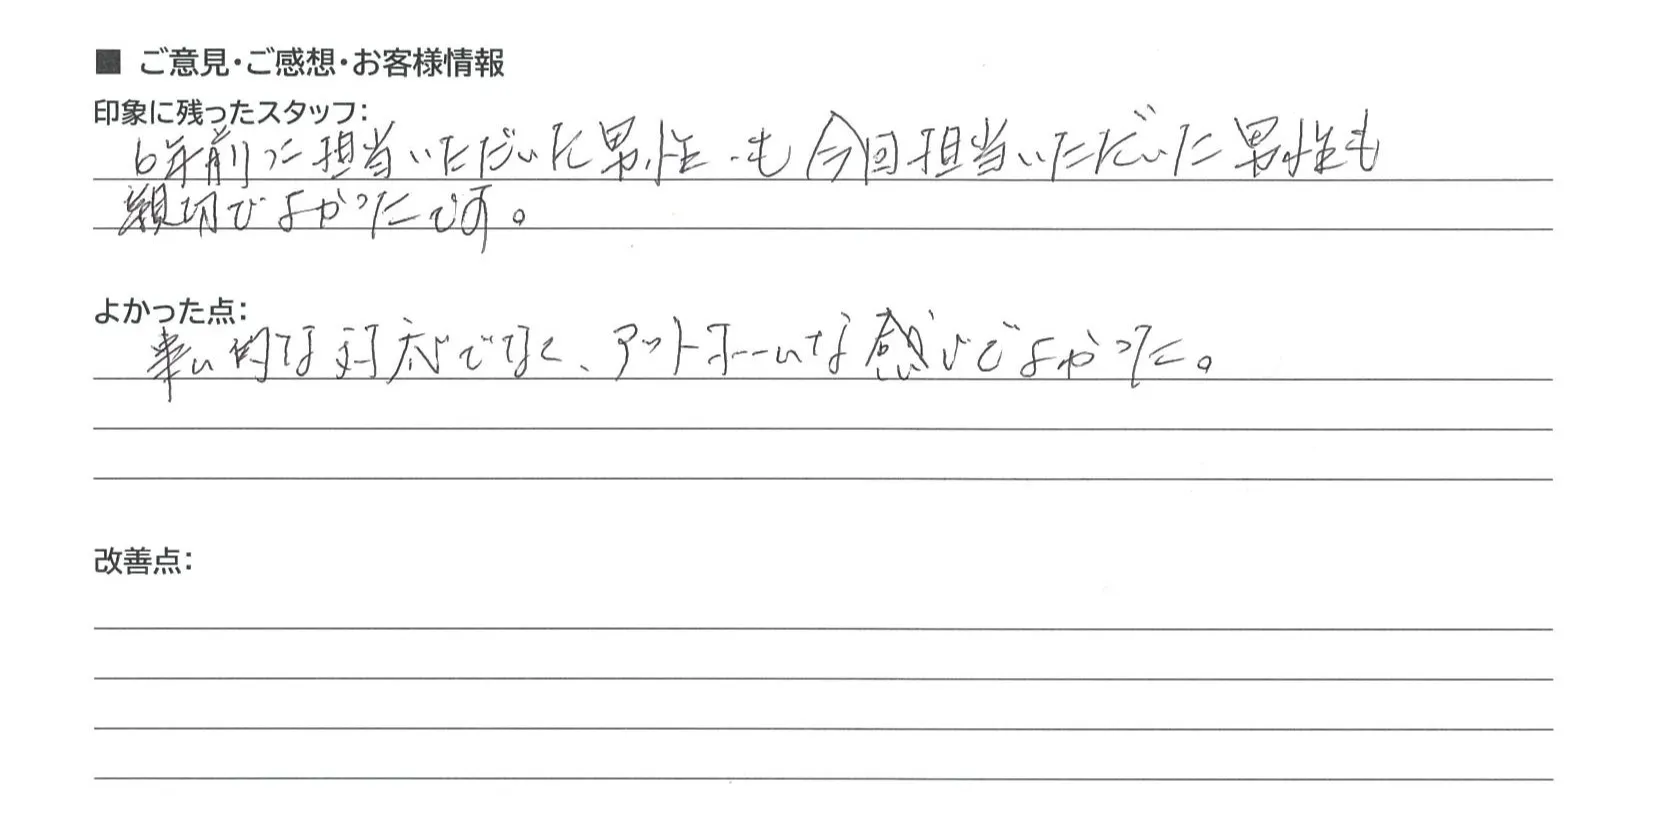 ■ ご意見・ご感想・お客様情報
印象に残ったスタッフ:
6年前に担当いただいた男性も今回担当いただいた男性も
親切でよかったです。
よかった点:
事ム的な対応でなく、アットホームな感じでよかった。
改善点: